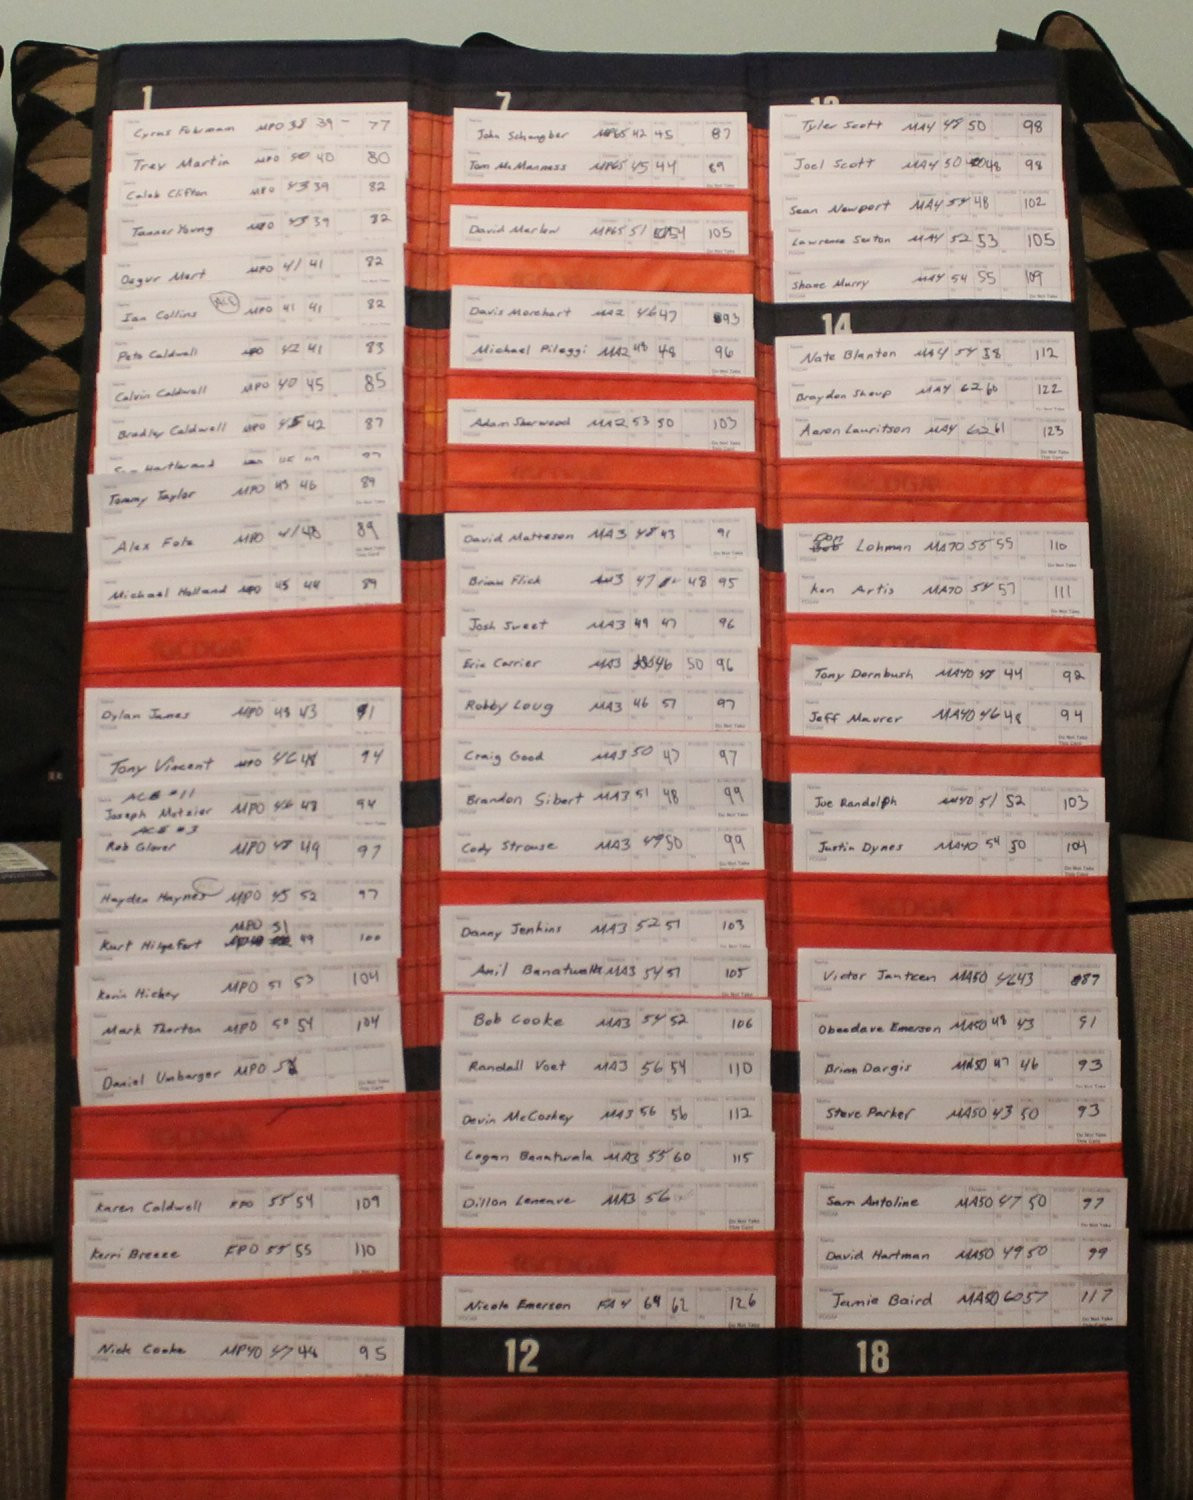 1
Cyrus Fuhrmann MPO 38 39 - 77
Trey Martin MPO 40 40 80
Caleb Clifton MPO 43 39 82
Tanner Young MPO 43 39 82
Dagur Mort MPO 41 41 82
Ian Collins ACE MPO 41 41 82
Pete Caldwell MPO 42 41 83
Calvin Caldwell MPO 40 45 85
Bradley Caldwell MPO 45 42 87
Hartleroad
Tommy Taylor MPO 43 46 89
Alex Fole MPO 41 48 89
Michael Holland MPO 45 44 89
IGCDGA
Dylan James MPO 48 43 91
Tony Vincent MPO 46 48 94
ACE #11
Joseph Metzler MPO 46 48 94
ACE #3
Rob Glover MPO 48 49 97
Hayden Haynes MPO 45 52 97
MPO 51
Kurt Hilgefort 49 100
Kevin Hickey MPO 51 53 104
Mark Thorton MPO 50 54 104
Daniel Umbarger MPO 58
Karen Caldwell FPO 55 54 109
Kerri Breeze FPO 55 55 110
Nick Cooke MP40 47 44 95
7
John Schangber MP65 42 45 87
Tom McManness MP65 45 44 89
David Marlow MP65 51 54 105
Davis Morehart MA2 46 47 93
Michael Pileggi MA2 48 48 96
Adam Sherwood MA2 53 50 103
David Matteson MA3 48 43 91
Brian Flick MA3 47 48 95
Josh Sweet MA3 49 47 96
Eric Carrier MA3 46 50 96
Robby Loug MA3 46 51 97
Craig Good MA3 50 47 97
Brandon Sibert MA3 51 48 99
Cody Strouse MA3 49 50 99
Danny Jenkins MA3 52 51 103
Anil Banatwalla MA3 54 51 105
Bob Cooke MA3 54 52 106
Randall Voet MA3 56 54 110
Devin McCoskey MA3 56 56 112
Logan Banatwala MA3 55 60 115
Dillon Leneave MA3 56
Nicole Emerson FA4 64 62 126
12
13
Tyler Scott MA4 48 50 98
Joel Scott MA4 50 48 98
Sean Newport MA4 54 48 102
Lawrence Sexton MA4 52 53 105
Shane Murry MA4 54 55 109
14
Nate Blanton MA4 54 58 112
Braydon Shoup MA4 62 60 122
Aaron Lauritson MA4 62 61 123
Ron Lohman MA70 55 55 110
Ken Artis MA70 54 57 111
Tony Dornbush MA40 48 44 92
Jeff Maurer MA40 46 48 94
Joe Randolph MA40 51 52 103
Justin Dynes MA40 54 50 104
Victor Jantzen MA50 46 43 87
Obeedave Emerson MA50 48 43 91
Brian Dargis MA50 47 46 93
Steve Parker MA50 43 50 93
Sam Antoline MA50 47 50 97
David Hartman MA50 49 50 99
Jamie Baird MA50 60 57 117
18